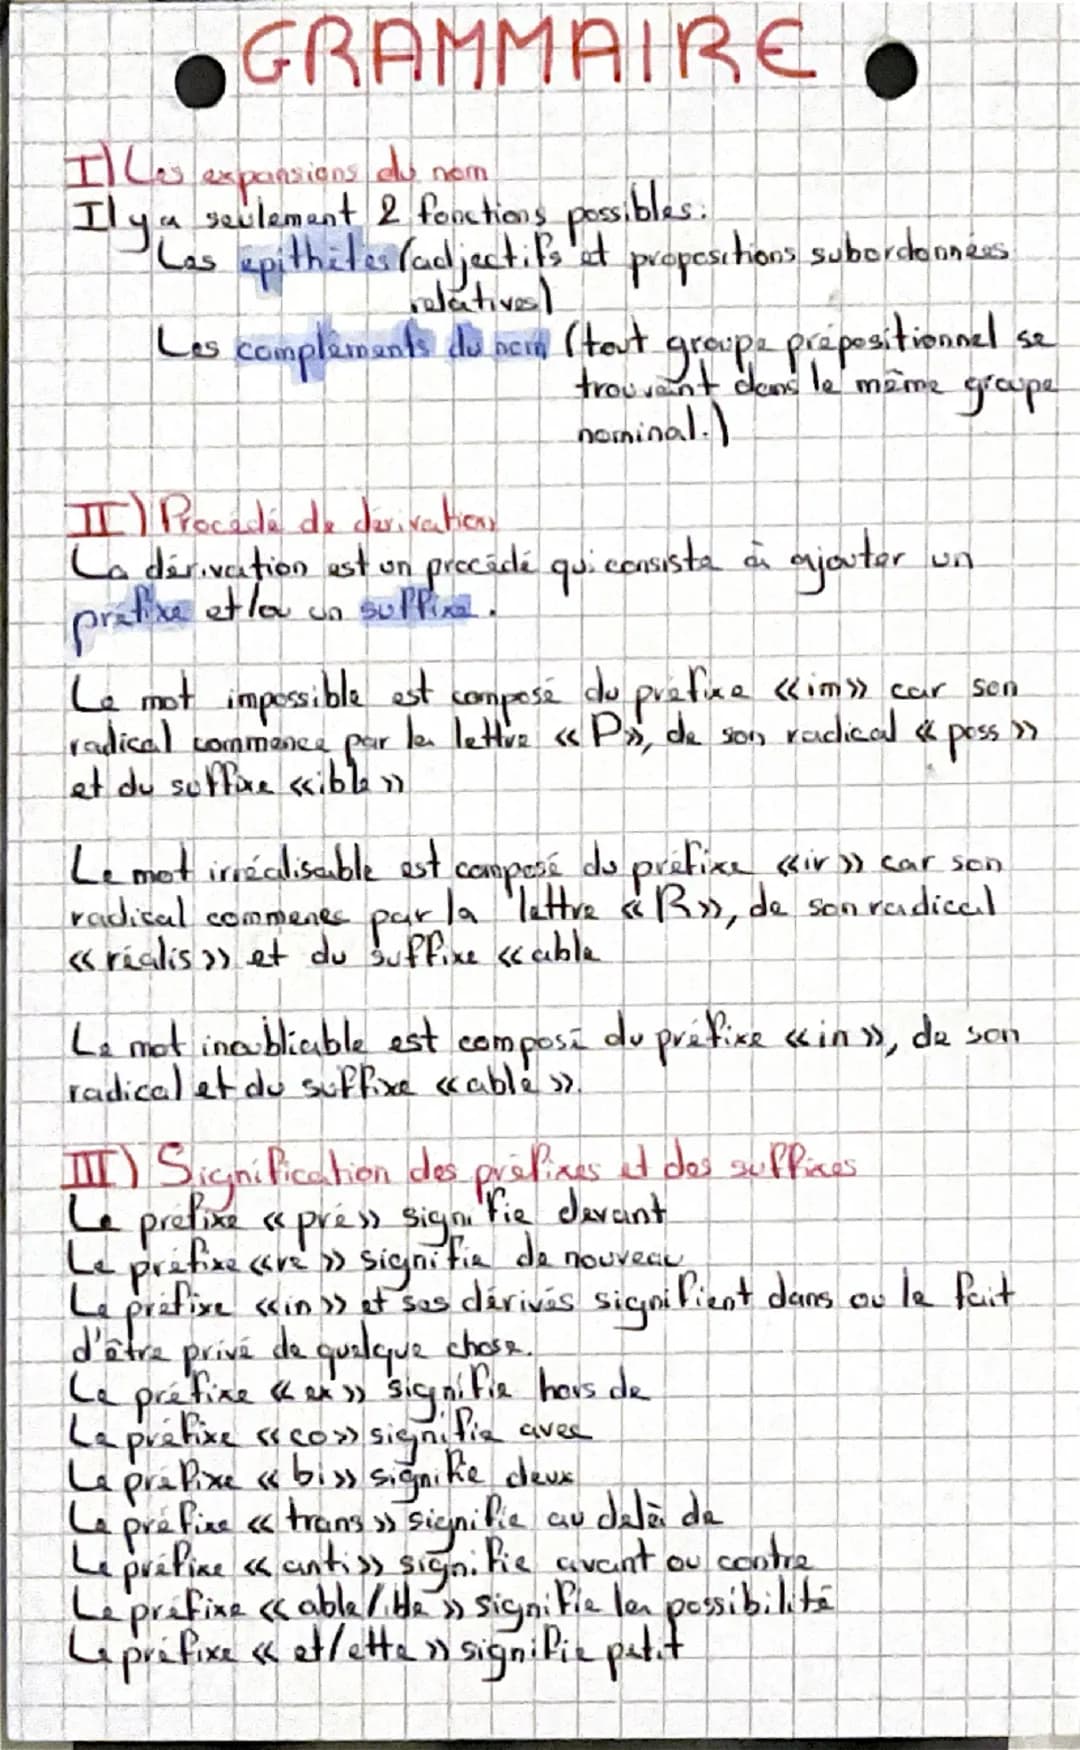 GRAMMAIRE
I) Les expansions du nom
Il y a seulement 2 fonctions possibles:
Les épithètes (adjectifs et propositions subordonnées
relatives)
Les compléments du nom (tout groupe prépositionnel se
trouvant dans le même groupe
nominal.)
II) Procédé de dérivation
La dérivation est un procédé qui consiste à ajouter un
préfixe et/ou un suffixe.
Le mot impossible est composé du préfixe «im» car son
radical commence par la lettre «P», de son radical «poss»
et du suffixe «ible»
Le mot irréalisable est composé du préfixe «ir» car son
radical commence par la lettre «R», de son radical
«réalis» et du suffixe «able
Le mot inoubliable est composé du préfixe «in», de son
radical et du suffixe «able».
III) Signification des préfixes et des suffixes
Le préfixe «pré» signifie devant
Le préfixe «re» signifie de nouveau
Le préfixe «in» et ses dérivés signifient dans ou le fait
d'être privé de quelque chose.
Le préfixe «ex» signifie hors de
Le préfixe «co» signifie avec
Le préfixe «bi» signifie deux
Le préfixe «trans» signifie au delà de
Le préfixe «anti» signifie avant ou contre
Le préfixe «able/ible» signifie la possibilité
Le préfixe «et/ette» signifie petit